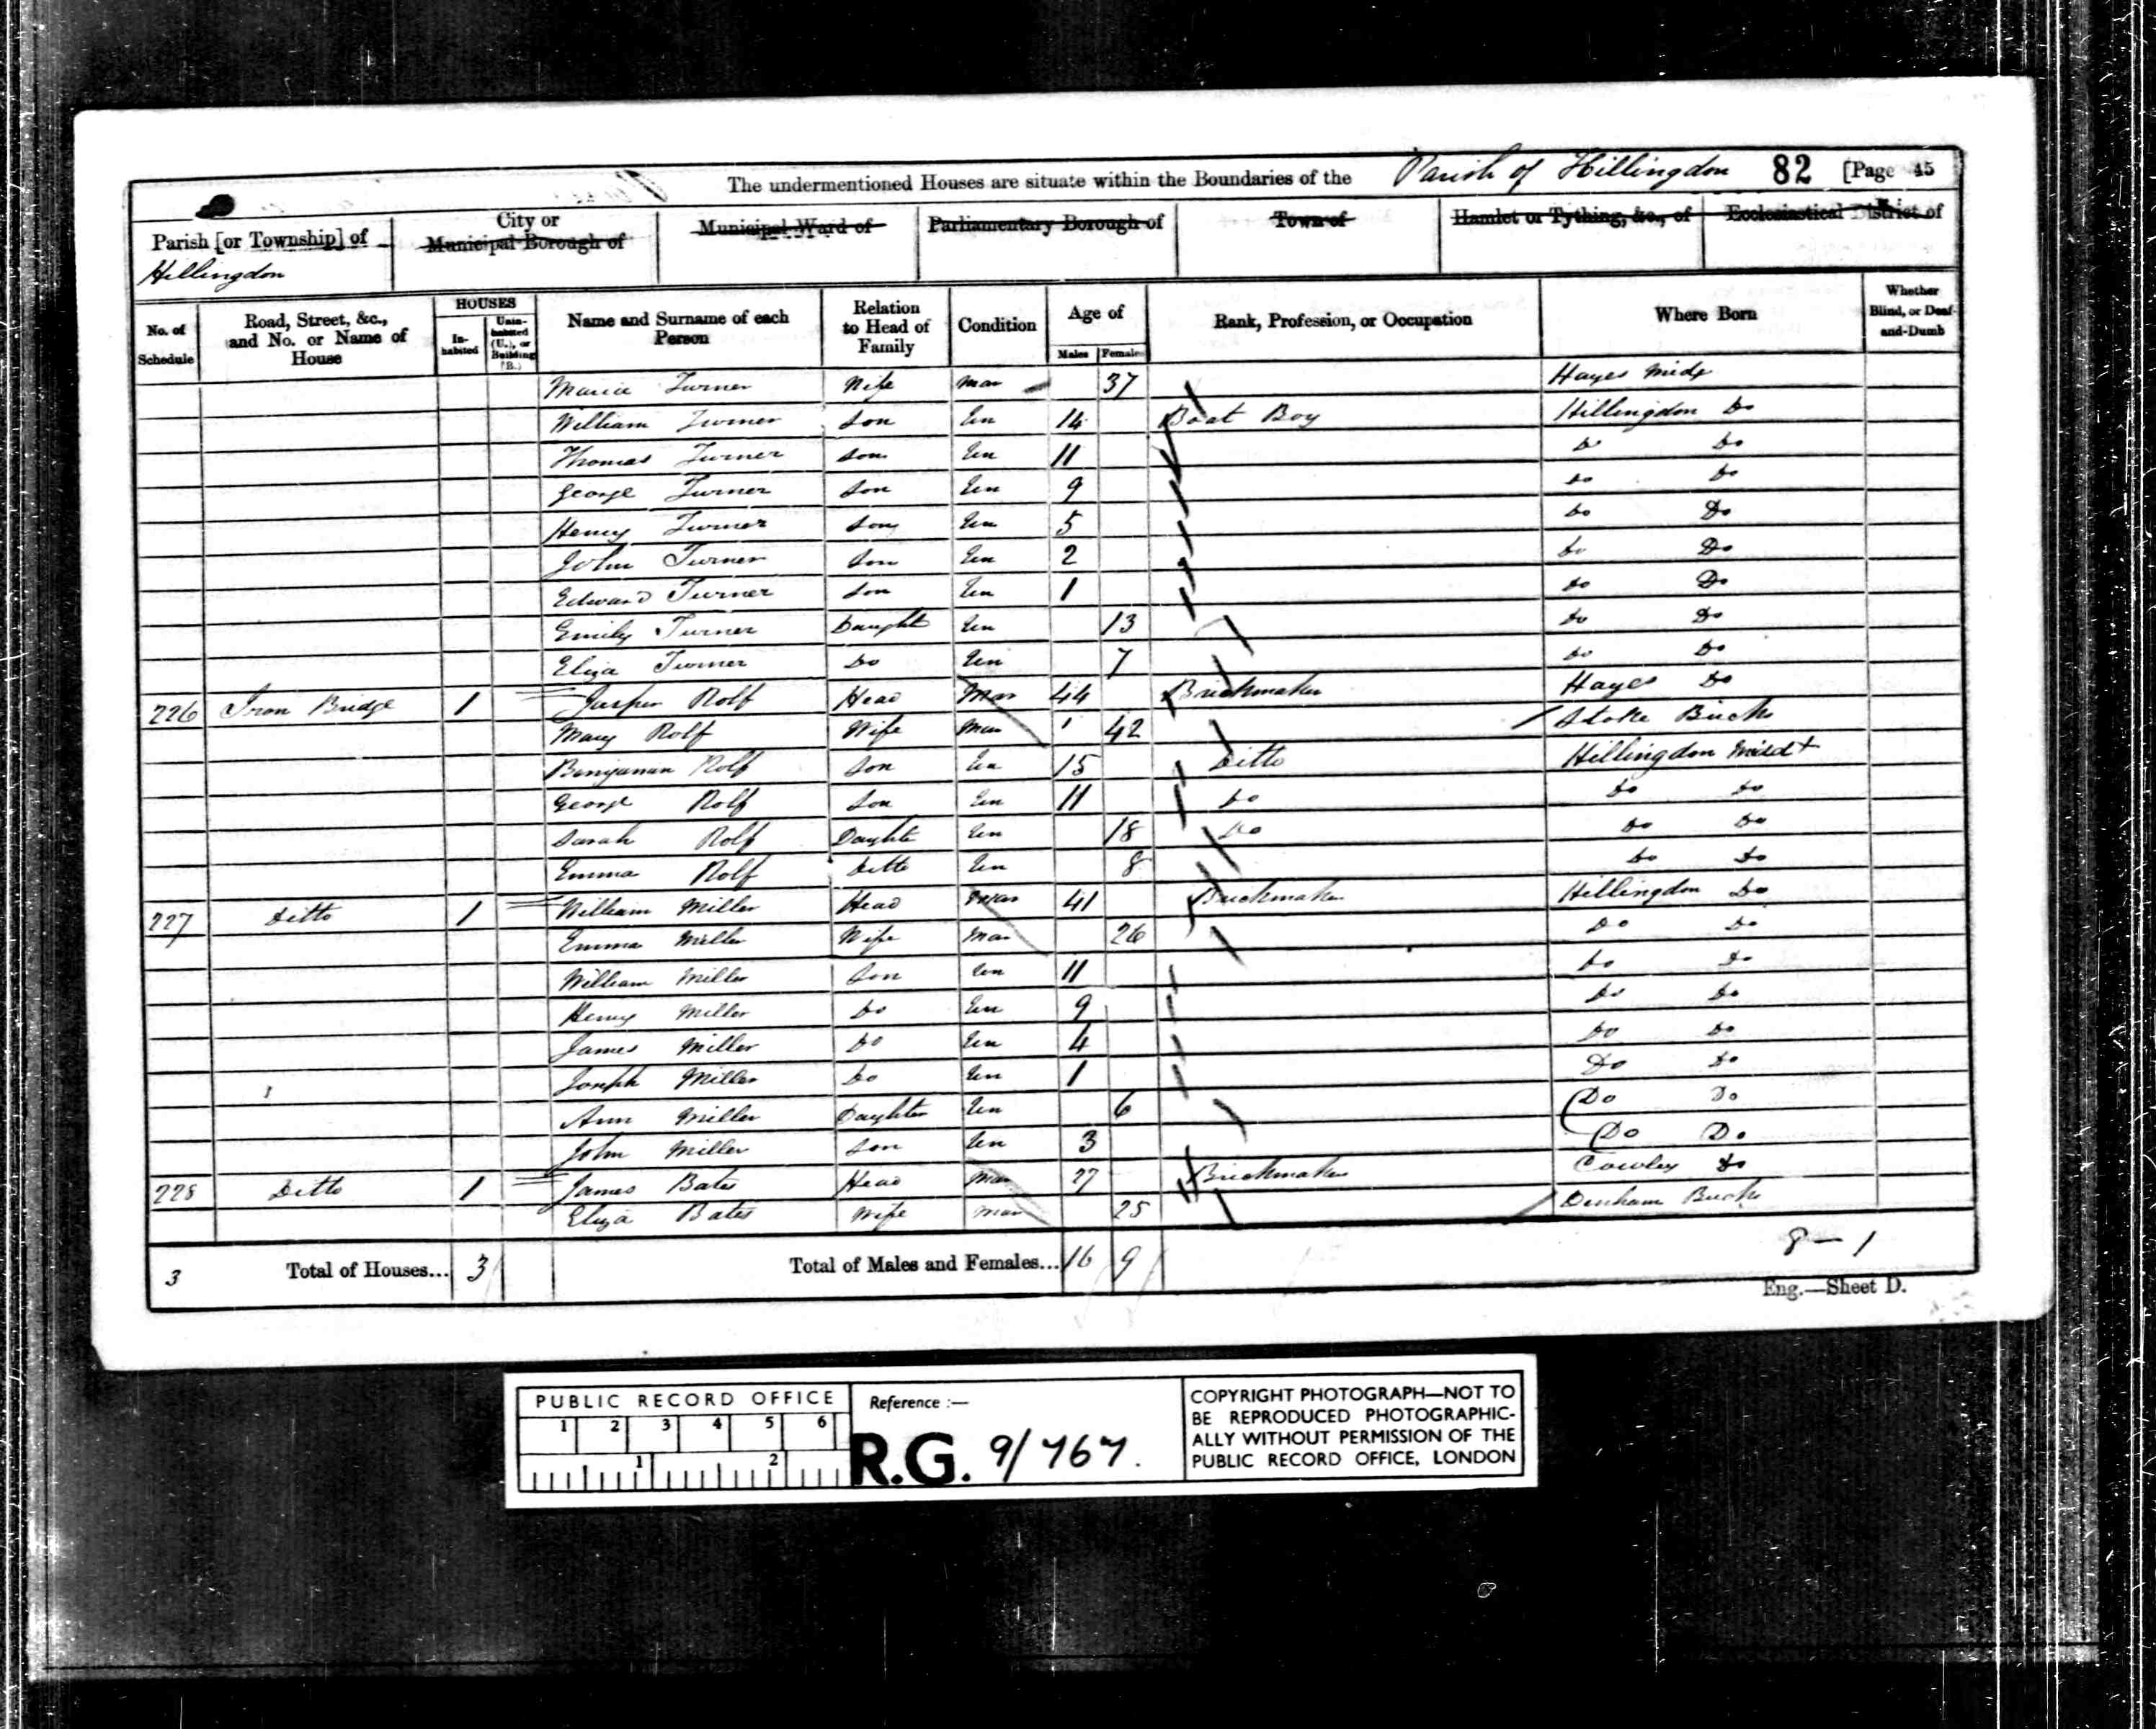 The undermentioned Houses are situate within the Boundaries of the Parish of Hillingdon 82 [Page 45
Parish [or Township] of Hillingdon
City or Municipal Borough of
Municipal Ward of
Parliamentary Borough of
Town of
Hamlet or Tything, &c., of
Ecclesiastical District of
No. of Schedule
Road, Street, &c., and No. or Name of House
HOUSES
In-habited
Unin-habited (U.), or Building (B.)
Name and Surname of each Person
Relation to Head of Family
Condition
Age of
Males Females
Rank, Profession, or Occupation
Where Born
Whether Blind, or Deaf-and-Dumb
Maria Turner Wife Mar 37 Hayes Midx
William Turner Son Un 14 Boat Boy Hillingdon Do
Thomas Turner Son Un 11 Do Do
George Turner Son Un 9 Do Do
Henry Turner Son Un 5 Do Do
John Turner Son Un 2 Do Do
Edward Turner Son Un 1 Do Do
Emily Turner Daught Un 13 Do Do
Eliza Turner Do Un 7 Do Do
226 Iron Bridge 1 Jasper Rolf Head Mar 44 Brickmaker Hayes Do
Mary Rolf Wife Mar 42 Stoke Bucks
Benjaman Rolf Son Un 15 Ditto Hillingdon
George Rolf Son Un 11 Do Do Do
Sarah Rolf Daughte Un 18 Do Do Do
Emma Rolf Ditto Un 8 Do Do
227 Ditto 1 William Miller Head Mar 41 Brickmaker Hillingdon Do
Emma Miller Wife Mar 26 Do Do
William Miller Son Un 11 Do Do
Henry Miller Do Un 9 Do Do
James Miller Do Un 4 Do Do
Joseph Miller Do Un 1 Do Do
Ann Miller Daughter Un 6 Do Do
John Miller Son Un 3 Do Do
228 Ditto 1 James Bates Head Mar 27 Brickmaker Cowley Do
Eliza Bates Wife Mar 25 Denham Bucks
3 Total of Houses... 3 Total of Males and Females... 16 9
8 - 1
Eng.—Sheet D.
PUBLIC RECORD OFFICE
1 2 3 4 5 6
1 2
Reference :—
R.G. 9/767.
COPYRIGHT PHOTOGRAPH—NOT TO
BE REPRODUCED PHOTOGRAPHIC-
ALLY WITHOUT PERMISSION OF THE
PUBLIC RECORD OFFICE, LONDON